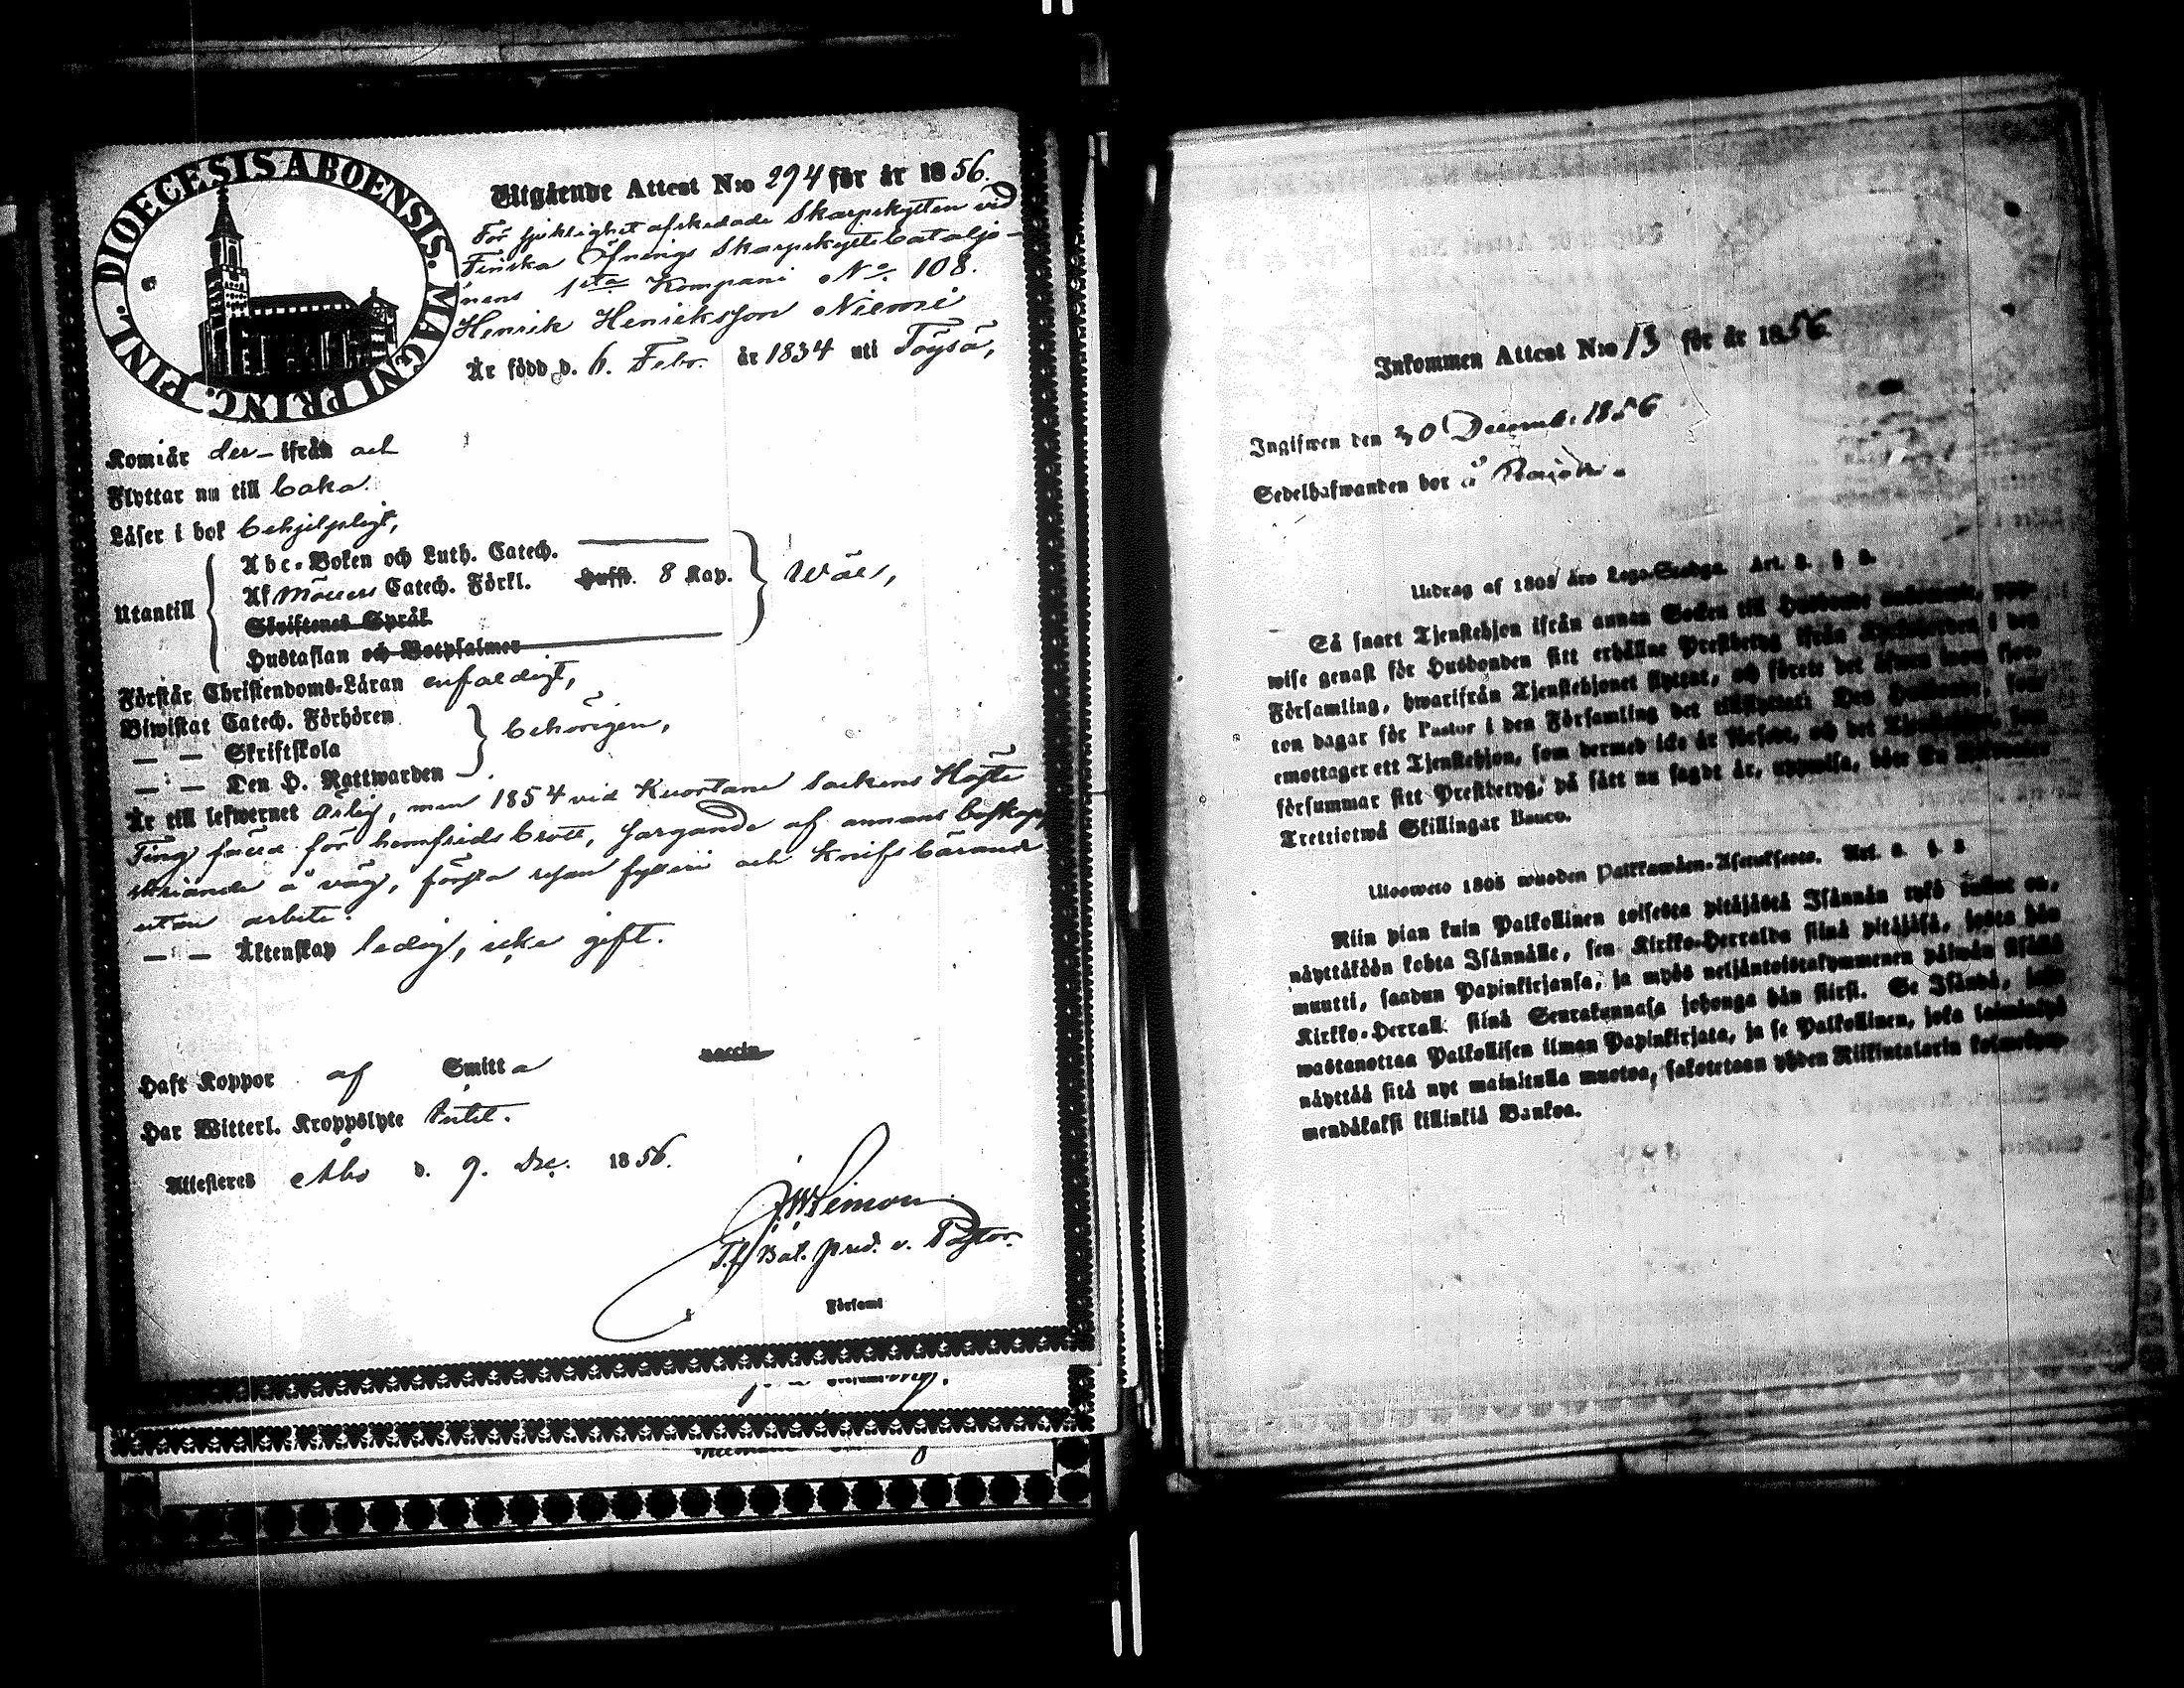 DIOECESIS ABOENSIS. MAGNI PRINC. FINL.
Utgående Attest N:o 294 för år 1856.
För sjuklighet afskedade Skarpskytten vid
Finska Öfnings Skarpskyttebataljo-
nens 1sta Kompani No. 108.
Henrik Henriksson Niemi
Är född d. 6. Febr. år 1834 uti Töysä,
Kom i år der- ifrån och
Flyttar nu till baka.
Läser i bok behjelpligt,
Utantill
Abc-Boken och Luth. Catech.
Af Möllers Catech. Förkl. Huffst. 8 Kap. Wäl,
Skriftenes Språk
Hustaflan och Botpsalmer
Förstår Christendoms-Läran enfaldigt,
Biwistat Catech. Förhören
— — Skriftskola behörigen,
— — Den H. Nattwarden
Är till lefwernet ärlig, men 1854 vid Kuortane Sockens Höste
Ting för hemfridsbrott, af annans
å väg, första resan fylleri och Knifsbärande
utan arbete.
— — Äktenskap ledig, icke gift.
Haft Koppor af Smitta vaccin
Har Witterl. Kroppslyte intet.
Attesteras Åbo d. 9. Dec. 1856.
T.f. Bat. pred. o. Pastor.
Församl
Inkommen Attest N:o 13 för år 1856.
Ingifwen den 30 Decemb. 1856
Sedelhafwanden bor å
Utdrag af 1805 års Lego-Stadga. Art. 2. §
Så snart Tjenstehjon ifrån annan Socken till Husbonde ankommit, upp-
wise genast för Husbonden sitt erhållne Prestbetyg ifrån Kyrkoherden i den
Församling, hwarifrån Tjenstehjonet flyttat, och förete det äfwen inom fjor-
ton dagar för Pastor i den Församling det tillflyttat. Den Husbonde, som
emottager ett Tjenstehjon, som dermed icke är försedt, och det Tjenstehjon, som
försummar sitt Prestbetyg, på sätt nu sagdt är, uppwisa, böte En Riksdaler
Trettiotwå Skillingar Banco.
Ulosweto 1805 wuoden Palkkawäen-Asetuksesta. Art. 2. §
Niin pian kuin Palkollinen toisesta pitäjästä Isännän tykö tullut on,
näyttäköön kohta Isännälle, sen Kirkko-Herralda siinä pitäjäsä, josta hän
muutti, saadun Papinkirjansa, ja myös neljäntoistakymmenen päiwän sisällä
Kirkko-Herrall. siinä Seurakunnasa johonga hän siirsi. Se Isändä, joka
wastanottaa Palkollisen ilman Papinkirjata, ja se Palkollinen, joka laiminlyö
näyttää sitä nyt mainitulla muotoa, sakotetaan yhden Riikintalarin kolmekym-
mendäkaksi killinkiä Bankoa.